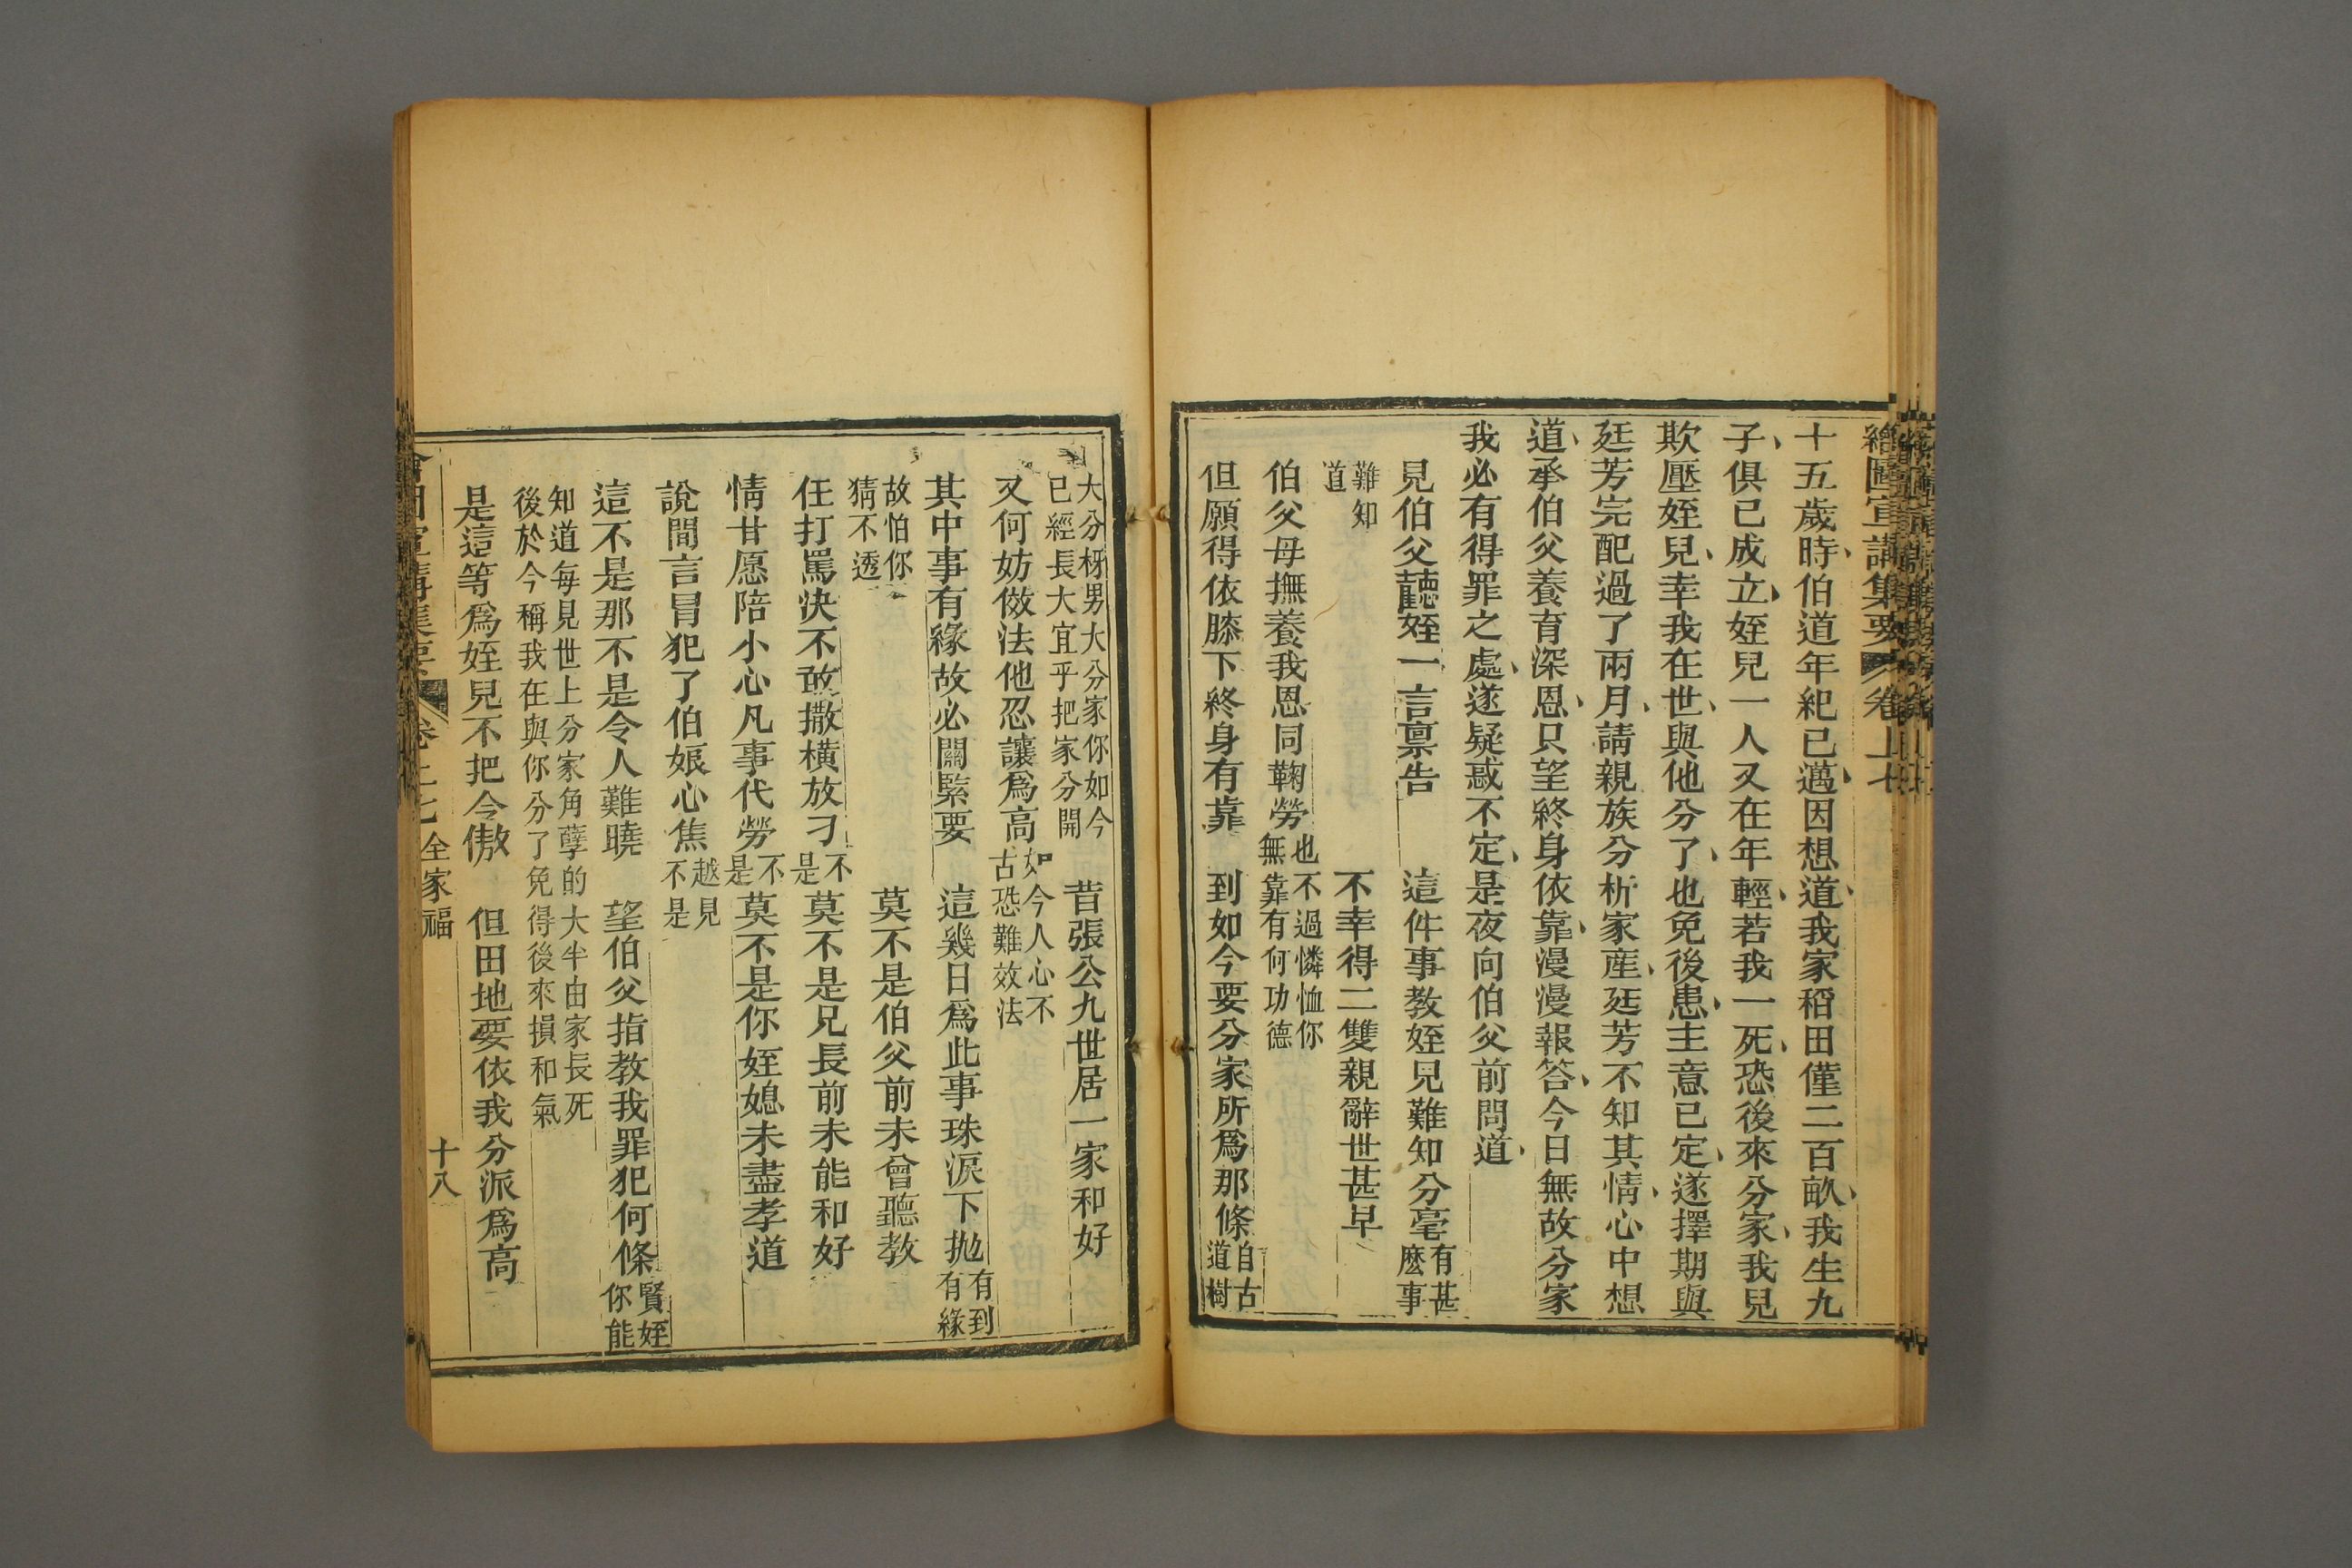 繪圖宣講集要 卷上七
十五歲時伯道年紀已邁因想道我家稻田僅二百畝我生九
子俱已成立姪兒一人又在年輕若我一死恐後來分家我兒
欺壓姪兒幸我在世與他分了也免後患主意已定遂擇期與
廷芳完配過了兩月請親族分析家產廷芳不知其情心中想
道承伯父養育深恩只望終身依靠漫漫報答今日無故分家
我必有得罪之處遂疑惑不定是夜向伯父前問道
見伯父聽姪一言禀告 這件事教姪兒難知分毫有甚麽事
難知道 不幸得二雙親辭世甚早
伯父母撫養我恩同鞠勞也不過憐恤你無靠有何功德
但願得依膝下終身有靠 到如今要分家所爲那條自古道樹
大分枒男大分家你如今已經長大宜乎把家分開 昔張公九世居一家和好
又何妨倣法他忍讓爲高如今人心不古恐難效法
其中事有緣故必關緊要 這幾日爲此事珠淚下抛有到有緣
故怕你猜不透 莫不是伯父前未曾聽教
任打駡決不敢撒橫放刁不是 莫不是兄長前未能和好
情甘愿陪小心凡事代勞不是 莫不是你姪媳未盡孝道
說閒言冒犯了伯娘心焦越見不是
這不是那不是令人難曉 望伯父指教我罪犯何條賢姪你能
知道每見世上分家角孽的大半由家長死後於今稱我在與你分了免得後來損和氣
是這等爲姪兒不把令傲 但田地要依我分派爲高
全家福 十八